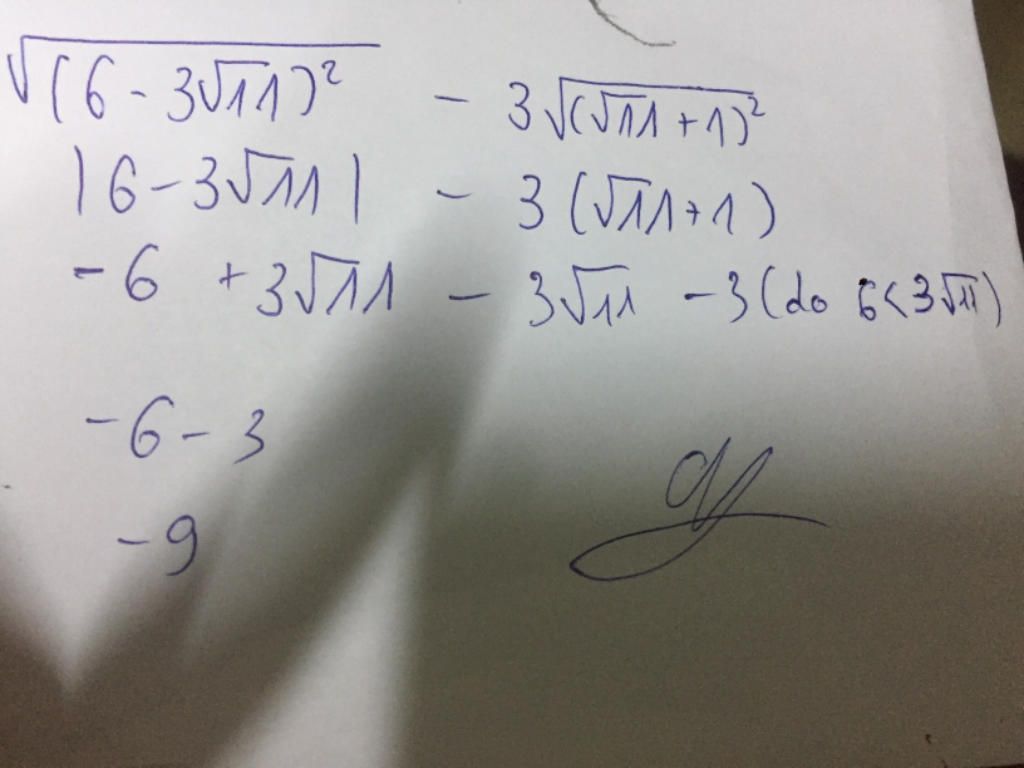 √(6 - 3√11)² - 3√(√11 + 1)²
|6 - 3√11| - 3 (√11 + 1)
-6 + 3√11 - 3√11 - 3 (do 6 < 3√11)
-6 - 3
-9